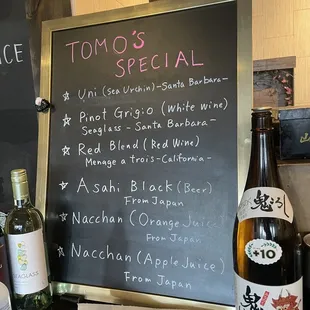 ICE
TOMO'S
SPECIAL
☆ Uni (Sea Urchin) - Santa Barbara -
☆ Pinot Grigio (White wine)
Seaglass - Santa Barbara -
☆ Red Blend (Red Wine)
Menage a trois - California -
☆ Asahi Black (Beer)
From Japan
☆ Nacchan (Orange Juice)
From Japan
☆ Nacchan (Apple Juice)
From Japan
SEAGLASS
鬼ころし
+10